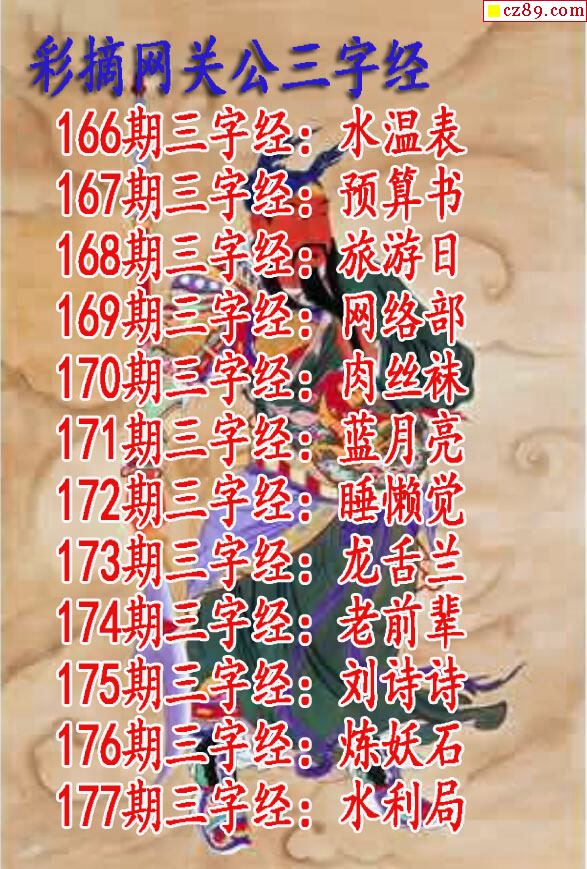 cz89.com
彩摘网关公三字经
166期三字经：水温表
167期三字经：预算书
168期三字经：旅游日
169期三字经：网络部
170期三字经：肉丝袜
171期三字经：蓝月亮
172期三字经：睡懒觉
173期三字经：龙舌兰
174期三字经：老前辈
175期三字经：刘诗诗
176期三字经：炼妖石
177期三字经：水利局